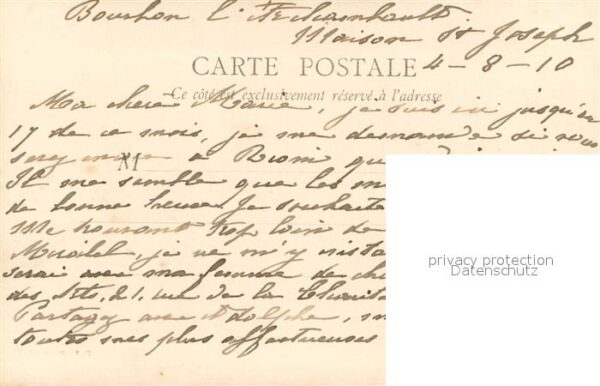 Bourbon l'Archambault
Maison St Joseph
CARTE POSTALE 4-8-10
Ce côté est exclusivement réservé à l'adresse
Ma chere Marie, je suis ici jusqu'au
17 de ce mois, je me demande si vous
serez encore à Riom
M
Il me semble que les
de bonne heure. Je souhaite
me trop loin de
je ne m'y
serai avec ma femme de
des Sts, 21, rue de la
Partagez avec Adolphe,
toutes mes plus affectueuses
privacy protection
Datenschutz